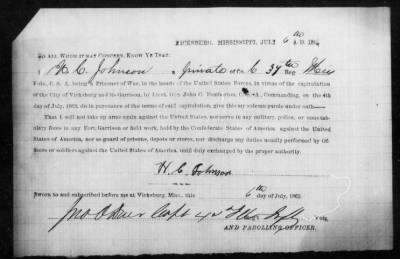 VICKSBURG, MISSISSIPPI, JULY 6th A. D. 1863.
TO ALL WHOM IT MAY CONCERN, KNOW YE THAT:
I, H. C. Johnson a Private of Co. C 37th Reg Miss
Vols., C. S. A., being a Prisoner of War, in the hands of the United States Forces, in virtue of the capitulation
of the City of Vicksburg and its Garrison, by Lieut. Gen. John C. Pemberton, C. S. A., Commanding, on the 4th
day of July, 1863, do in pursuance of the terms of said capitulation, give this my solemn parole under oath—
That I will not take up arms again against the United States, nor serve in any military, police, or consta-
bulary force in any Fort, Garrison or field work, held by the Confederate States of America, against the United
States of America, nor as guard of prisons, depots or stores, nor discharge any duties usually performed by Of-
ficers or soldiers against the United States of America, until duly exchanged by the proper authority.
H. C. Johnson
Sworn to and subscribed before me at Vicksburg, Miss., this 6th day of July, 1863.
Jno Capt Ills Vols.
AND PAROLLING OFFICER.